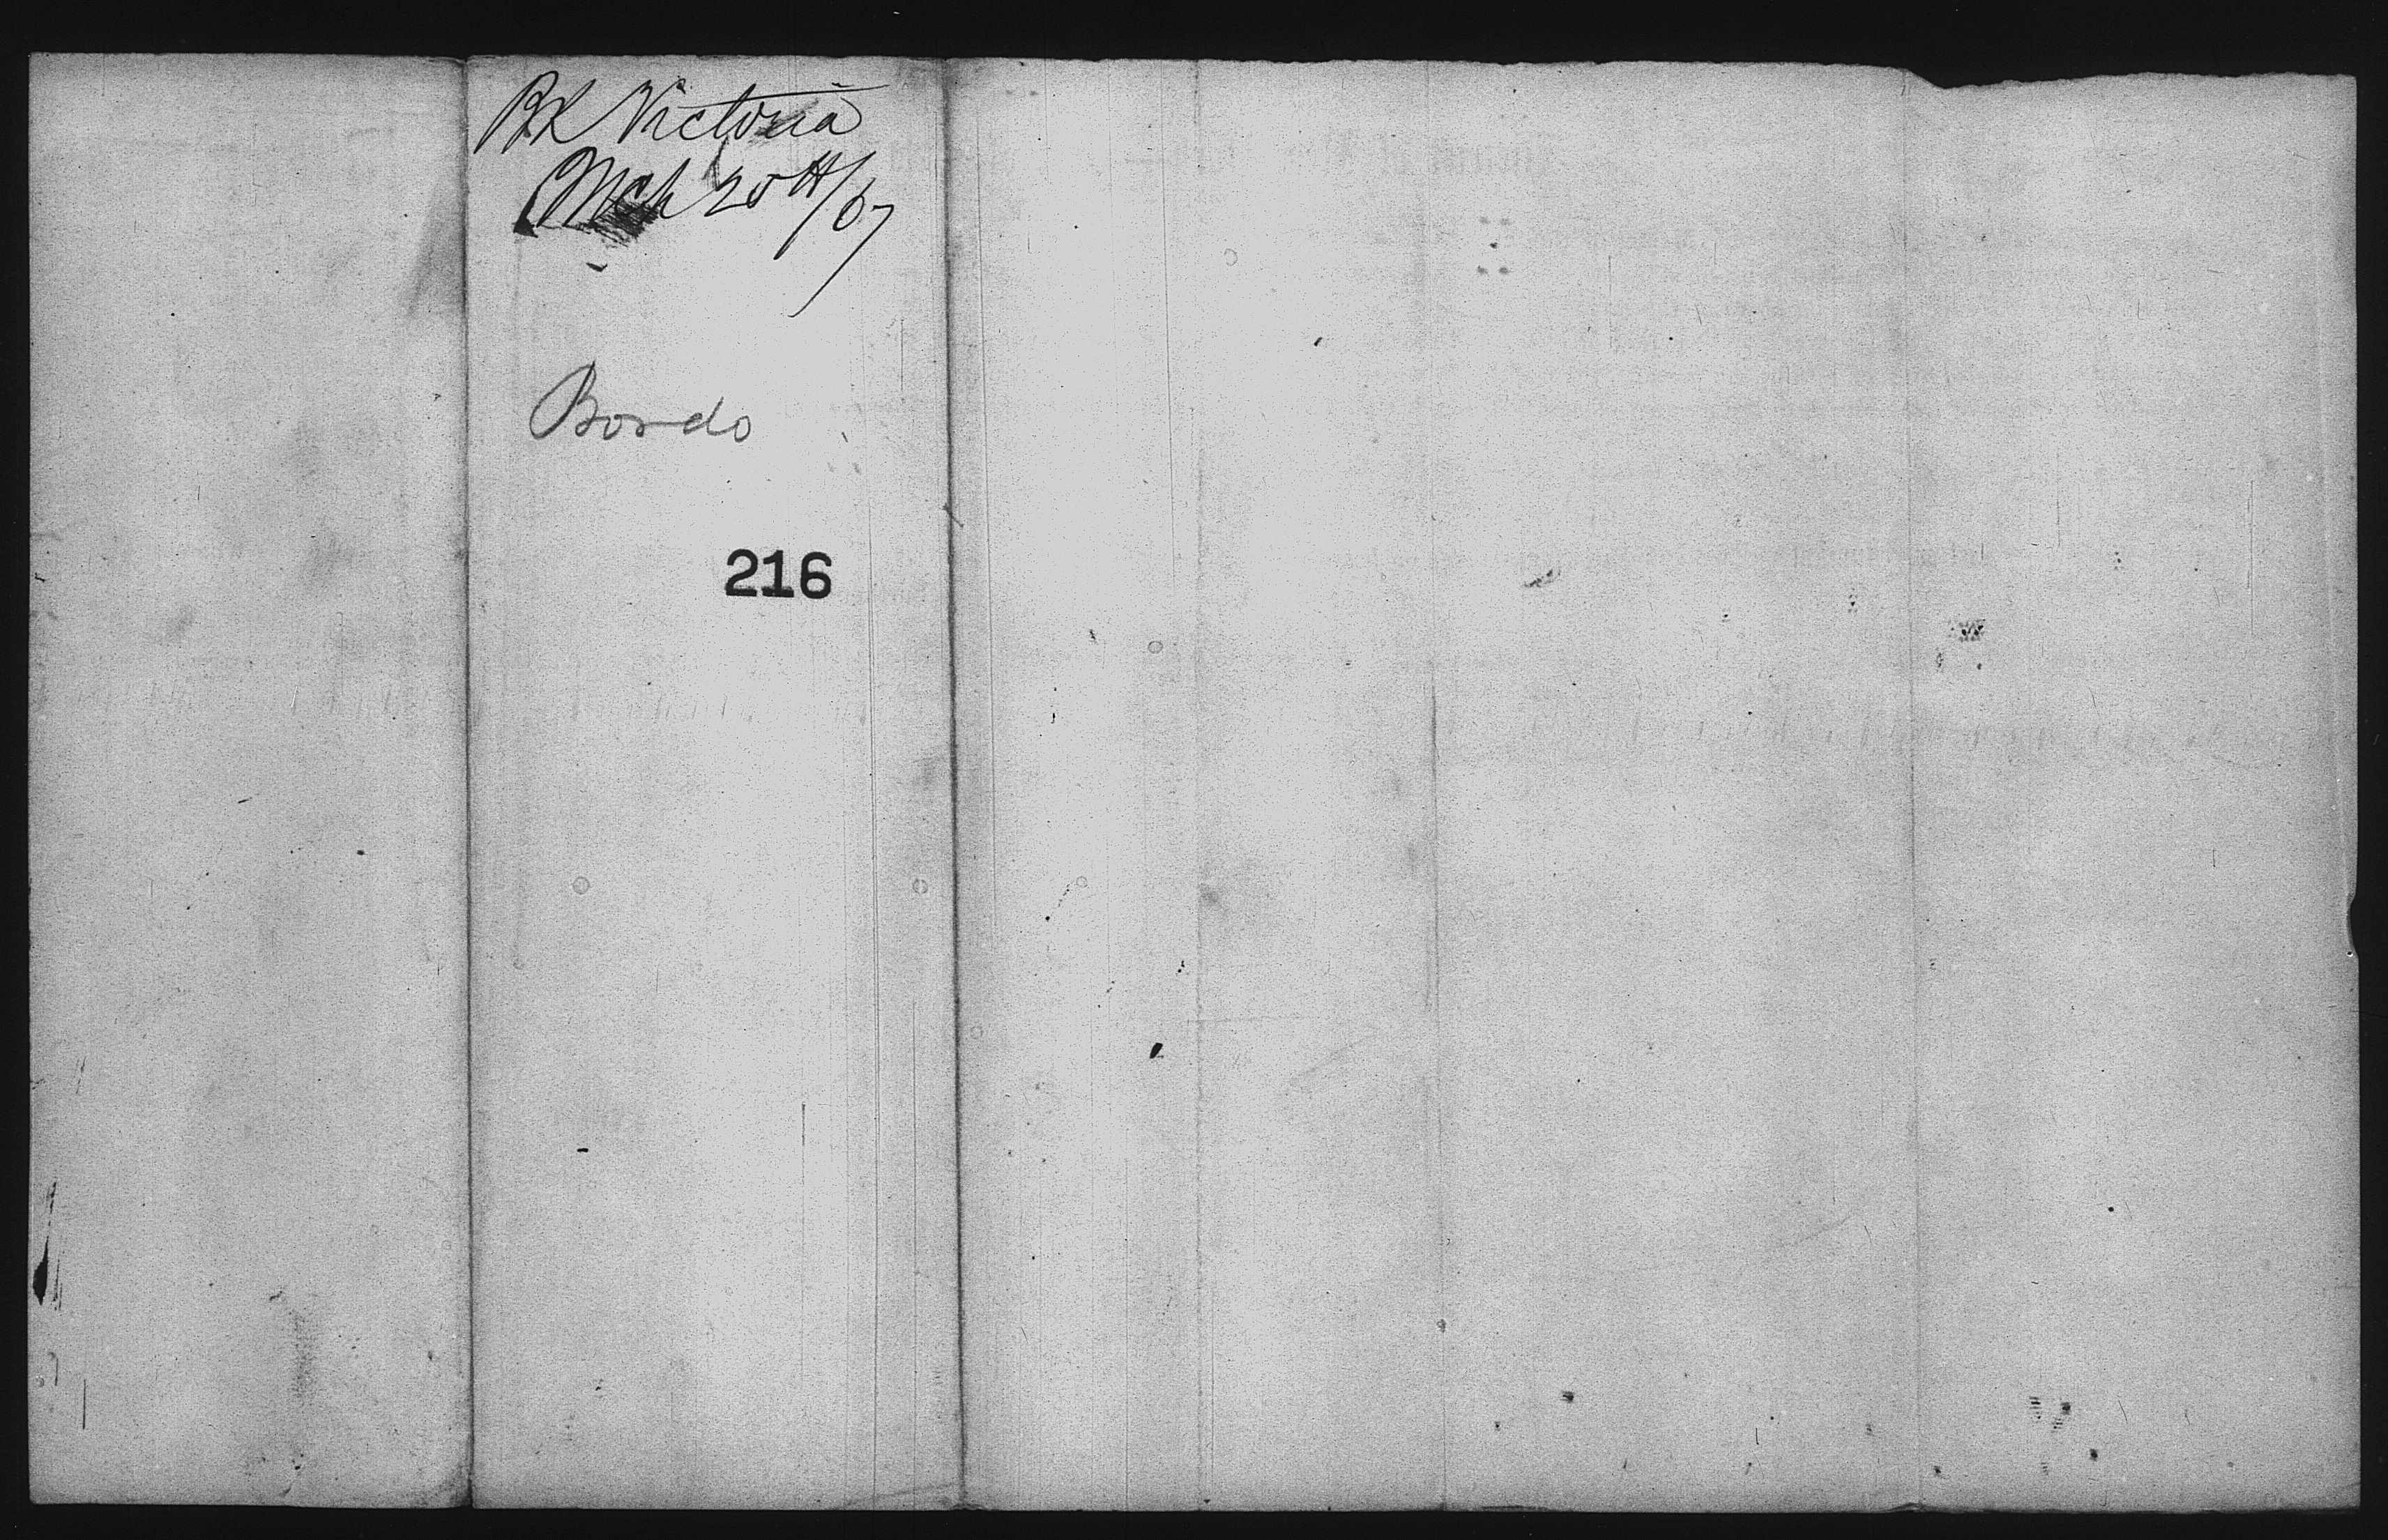 Bk Victoria
Mch 20th/67
Bordo
216